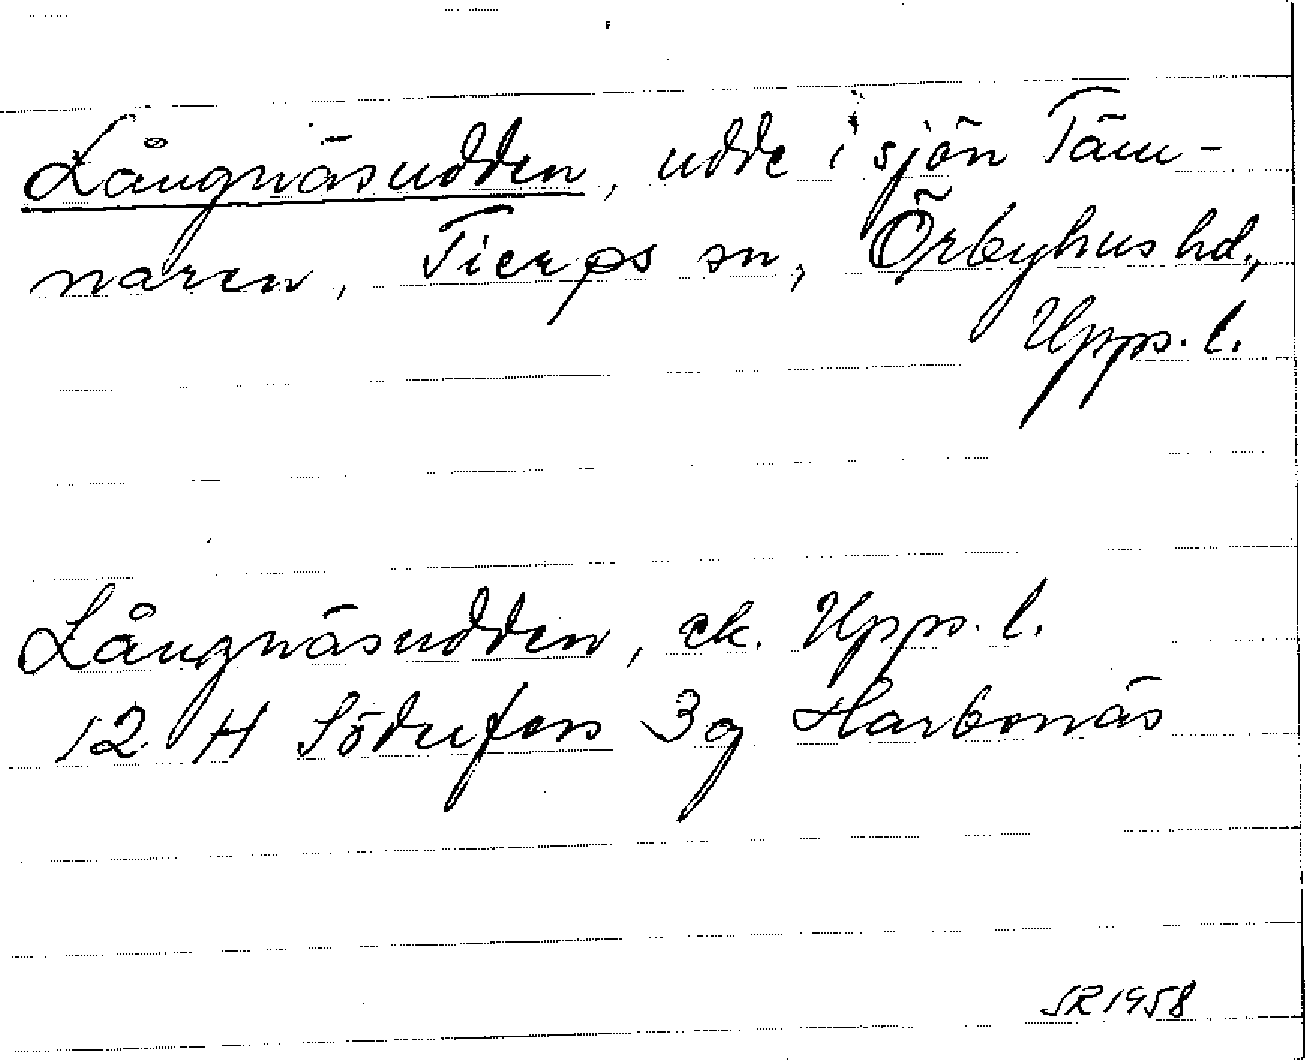 Långnäsudden, udde i sjön Täm-
naren, Tierps sn, Örbyhus hd,
Upps. l.
Långnäsudden, ek. Upps. l.
12 H Söderfors 3g Harbonäs
SR 1958